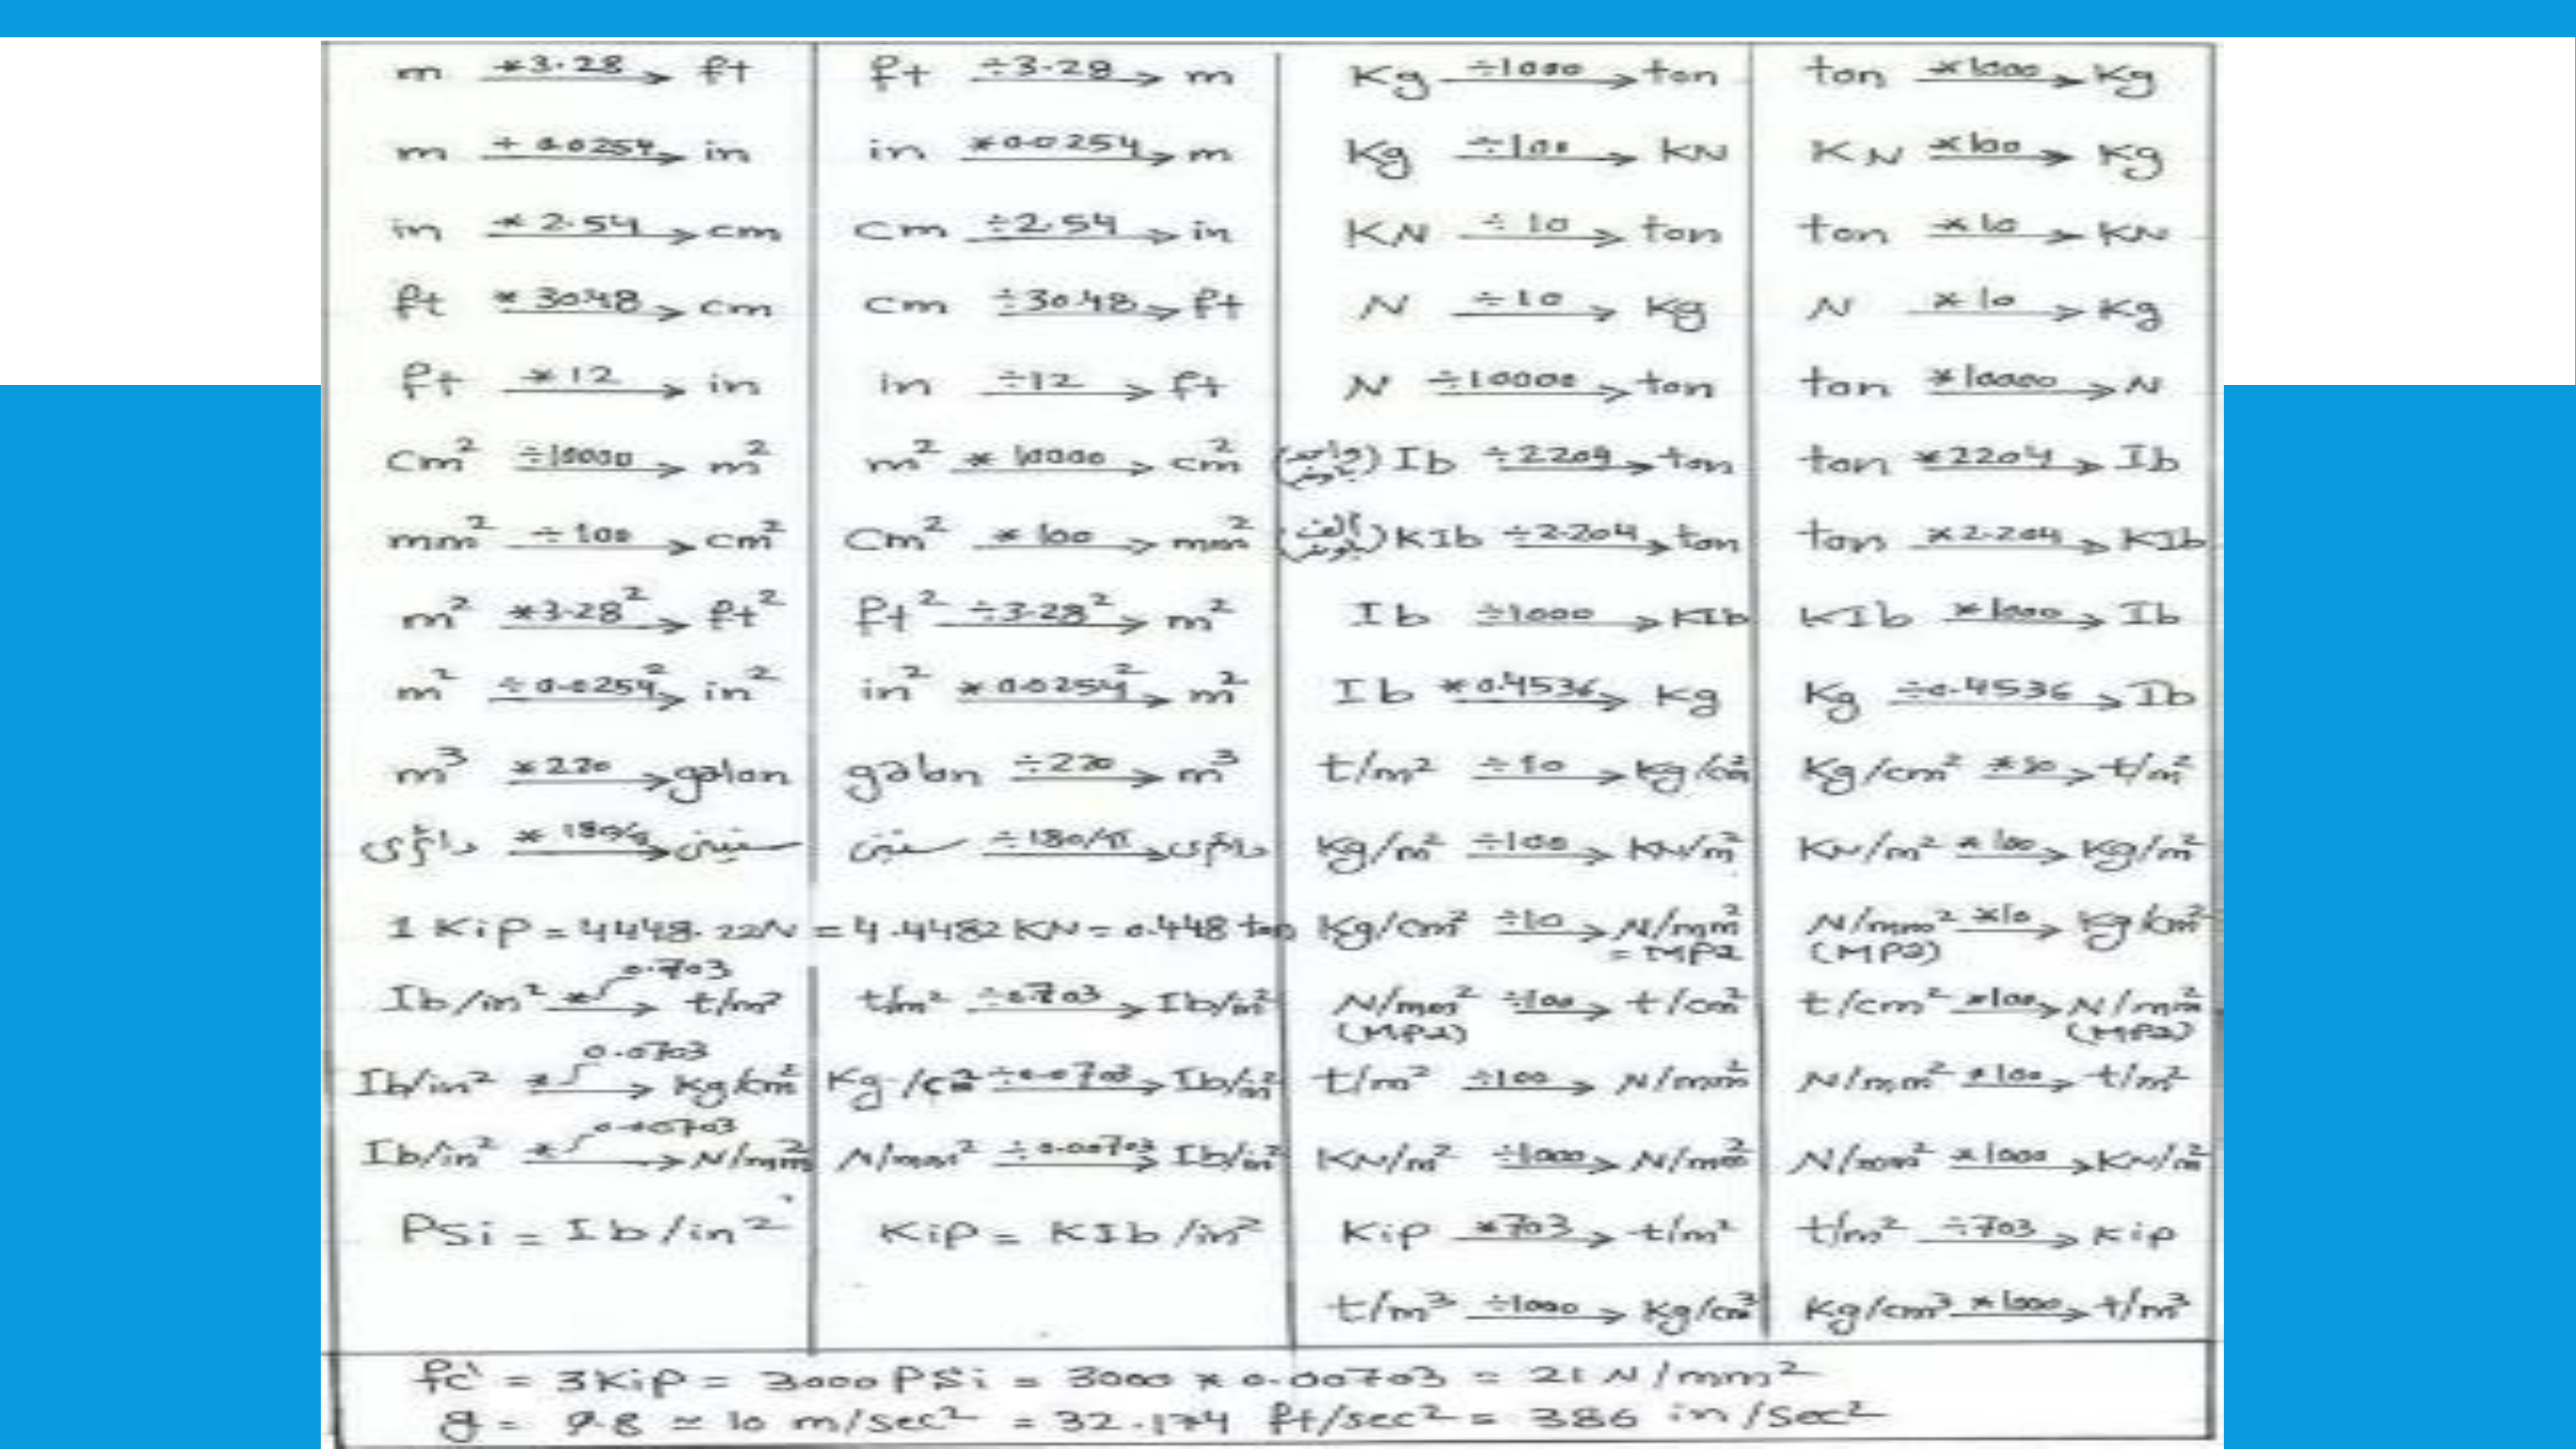 m *3.28 → ft
ft ÷3.28 → m
Kg ÷1000 → ton
ton *1000 → Kg
m ÷ 0.0254 → in
in *0.0254 → m
Kg ÷100 → KN
KN *100 → Kg
in * 2.54 → cm
cm ÷2.54 → in
KN ÷10 → ton
ton *10 → KN
ft * 30.48 → cm
cm ÷30.48 → ft
N ÷10 → Kg
N *10 → Kg
ft *12 → in
in ÷12 → ft
N ÷10000 → ton
ton *10000 → N
cm² ÷10000 → m²
m² * 10000 → cm²
Ib ÷2204 → ton
ton *2204 → Ib
mm² ÷100 → cm²
cm² * 100 → mm²
KIb ÷2.204 → ton
ton *2.204 → KIb
m² *3.28² → ft²
ft² ÷3.28² → m²
Ib ÷1000 → KIb
KIb *1000 → Ib
m² ÷0.0254² → in²
in² *0.0254² → m²
Ib *0.4536 → Kg
Kg ÷0.4536 → Ib
m³ *220 → galon
galon ÷220 → m³
t/m² ÷10 → Kg/cm²
Kg/cm² *10 → t/m²
* 180/π →
÷180/π →
Kg/m² ÷100 → KN/m²
KN/m² *100 → Kg/m²
1 Kip = 4448.22N = 4.4482 KN = 0.448 ton
Kg/cm² ÷10 → N/mm² = MPa
N/mm² (MPa) *10 → Kg/cm²
Ib/in² * 0.703 → t/m²
t/m² ÷0.703 → Ib/in²
N/mm² (MPa) ÷100 → t/cm²
t/cm² *100 → N/mm² (MPa)
Ib/in² * 0.0703 → Kg/cm²
Kg/cm² ÷0.0703 → Ib/in²
t/m² ÷100 → N/mm²
N/mm² *100 → t/m²
Ib/in² * 0.00703 → N/mm²
N/mm² ÷0.00703 → Ib/in²
KN/m² ÷1000 → N/mm²
N/mm² *1000 → KN/m²
PSi = Ib/in²
Kip = KIb/in²
Kip *703 → t/m²
t/m² ÷703 → Kip
t/m³ ÷1000 → Kg/cm³
Kg/cm³ *1000 → t/m³
fc' = 3Kip = 3000 PSi = 3000 * 0.00703 = 21 N/mm²
g = 9.8 ≃ 10 m/sec² = 32.174 ft/sec² = 386 in/sec²